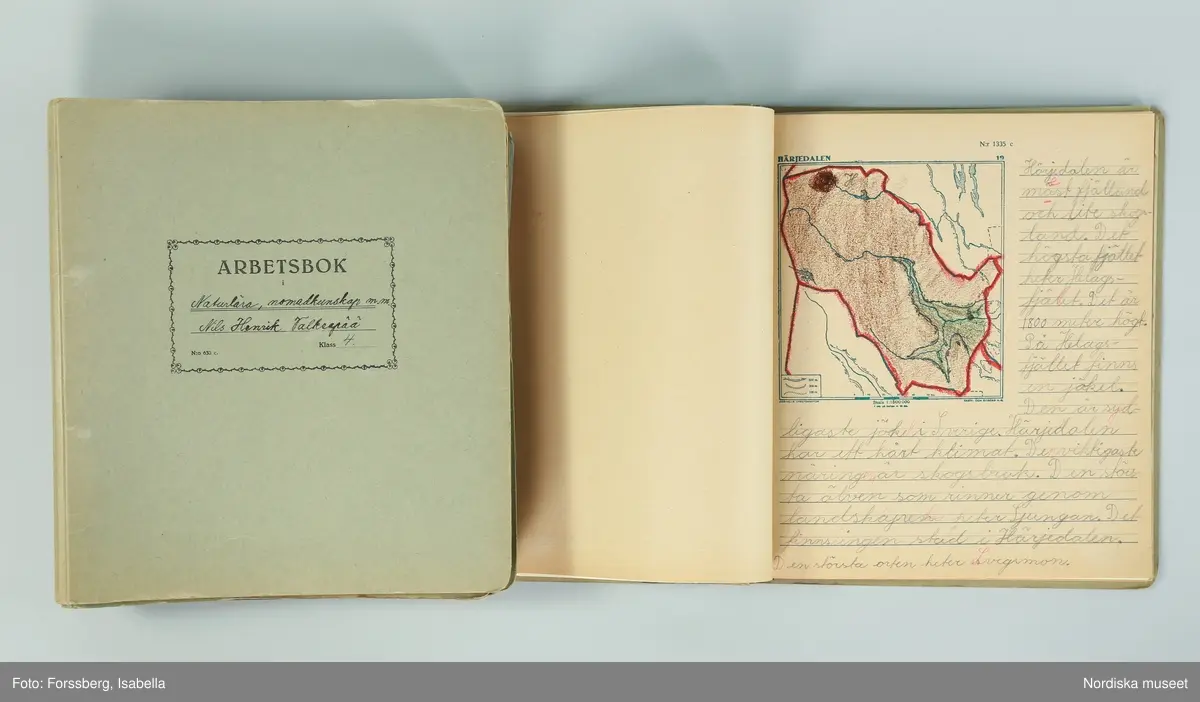 ARBETSBOK
i
Naturlära, nomedkunskap m.m.
Nils Henrik Valkeapää
Klass 4.
N:o 655 c.
N:r 1335 c
HÄRJEDALEN 19
Härjedalen är
mäst fjälland
e
och lite skog-
land. Det
högsta fjället
heter Helags-
fjället. Det är
1800 meter högt.
På Helags-
fjället finns
en jökel.
Den är syd-
ligaste jökel i Sverige. Härjedalen
har ett hårt klimat. Den viktigaste
näring är skogsbruk. Den störs
ta älven som rinner genom
landskapet heter Ljungan. Det
finns ingen stad i Härjedalen.
Den största orten heter Svegsmon.
Skala 1:1 500 000
Foto: Forssberg, Isabella
Nordiska museet